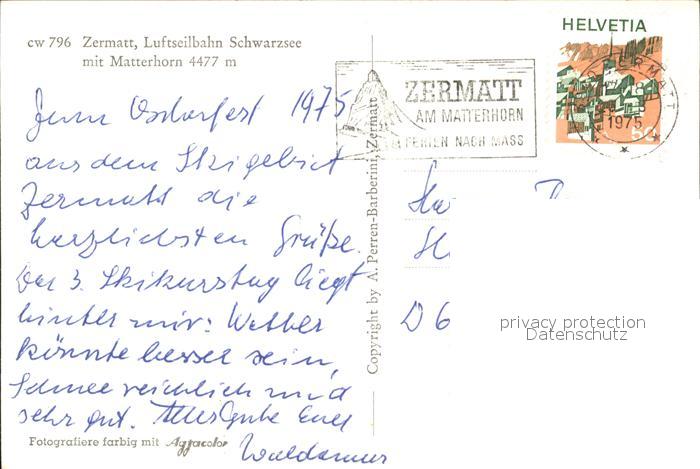 cw 796 Zermatt, Luftseilbahn Schwarzsee
mit Matterhorn 4477 m
HELVETIA
ZERMATT
1975
60
ZERMATT
AM MATTERHORN
FERIEN NACH MASS
Zum Osterfest 1975
aus dem Skigebiet
Zermatt die
herzlichsten Grüße.
Der 3. Skikurstag liegt
hinter mir: Wetter
könnte besser sein,
Schnee reichlich und
sehr gut. Alles Gute Euch
Waldemar
D 6
Copyright by A. Perren-Barberini, Zermatt
Fotografiere farbig mit Agfacolor
privacy protection
Datenschutz